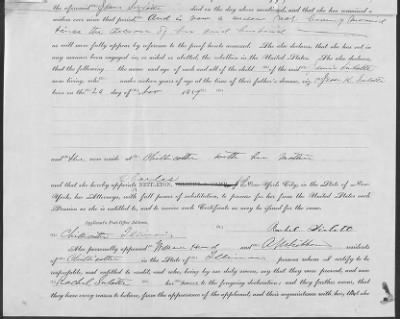 the aforesaid                     died on the day above mentioned, and that she has remained a
widow ever since that period; And is now a widow not having married
since the decease of her said husband
as will more fully appear by reference to the proof hereto annexed. She also declares, that she has not in
any manner been engaged in, or aided or abetted, the rebellion in the United States. She also declares,
that the following      name and age of each and all of the child  of the said
now living, who      under sixteen years of age at the time of their father's decease, viz.:
born on the 26 day of Nov
and that     now reside at Chillicothe with her Mother
and that she hereby appoints Charles NETTLETON,             New-York City, in the State of New-
York, her Attorney, with full power of substitution, to procure for her from the United States such
Pension as she is entitled to, and to receive such Certificate as may be issued for the same.
Applicant's Post-Office Address,
Chillicothe Illinois                    Rachel
Also personally appeared                     and                     residents
of Chillicothe in the State of Illinois persons whom I certify to be
respectable, and entitled to credit; and who, being by me duly sworn, say that they were present, and saw
Rachel                her       name to the foregoing declaration; and they further swear, that
they have every reason to believe, from the appearance of the applicant, and their acquaintance with her, that she